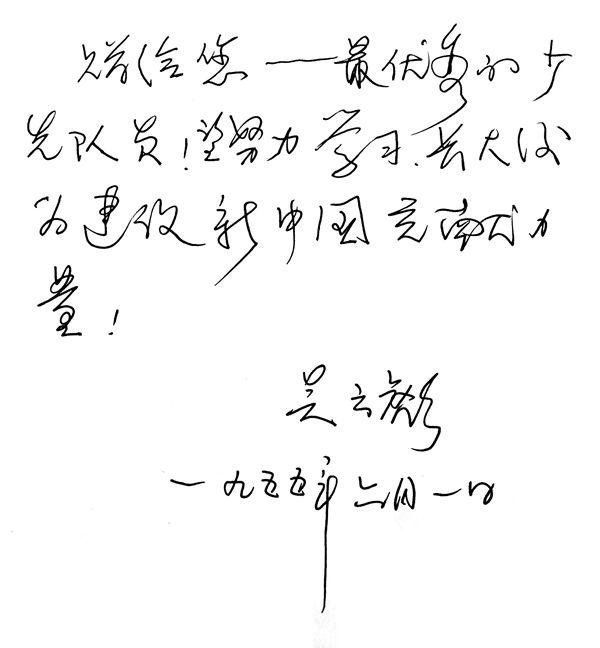 赠给您——最优秀的少
先队员！望努力学习.长大后
为建设新中国贡献力
量！
吴云
一九五五年六月一日